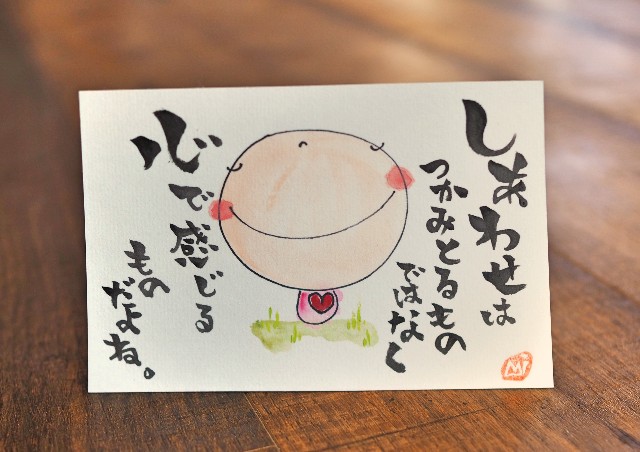 しあわせは
つかみとるもの
ではなく
心で感じる
もの
だよね。
Mi